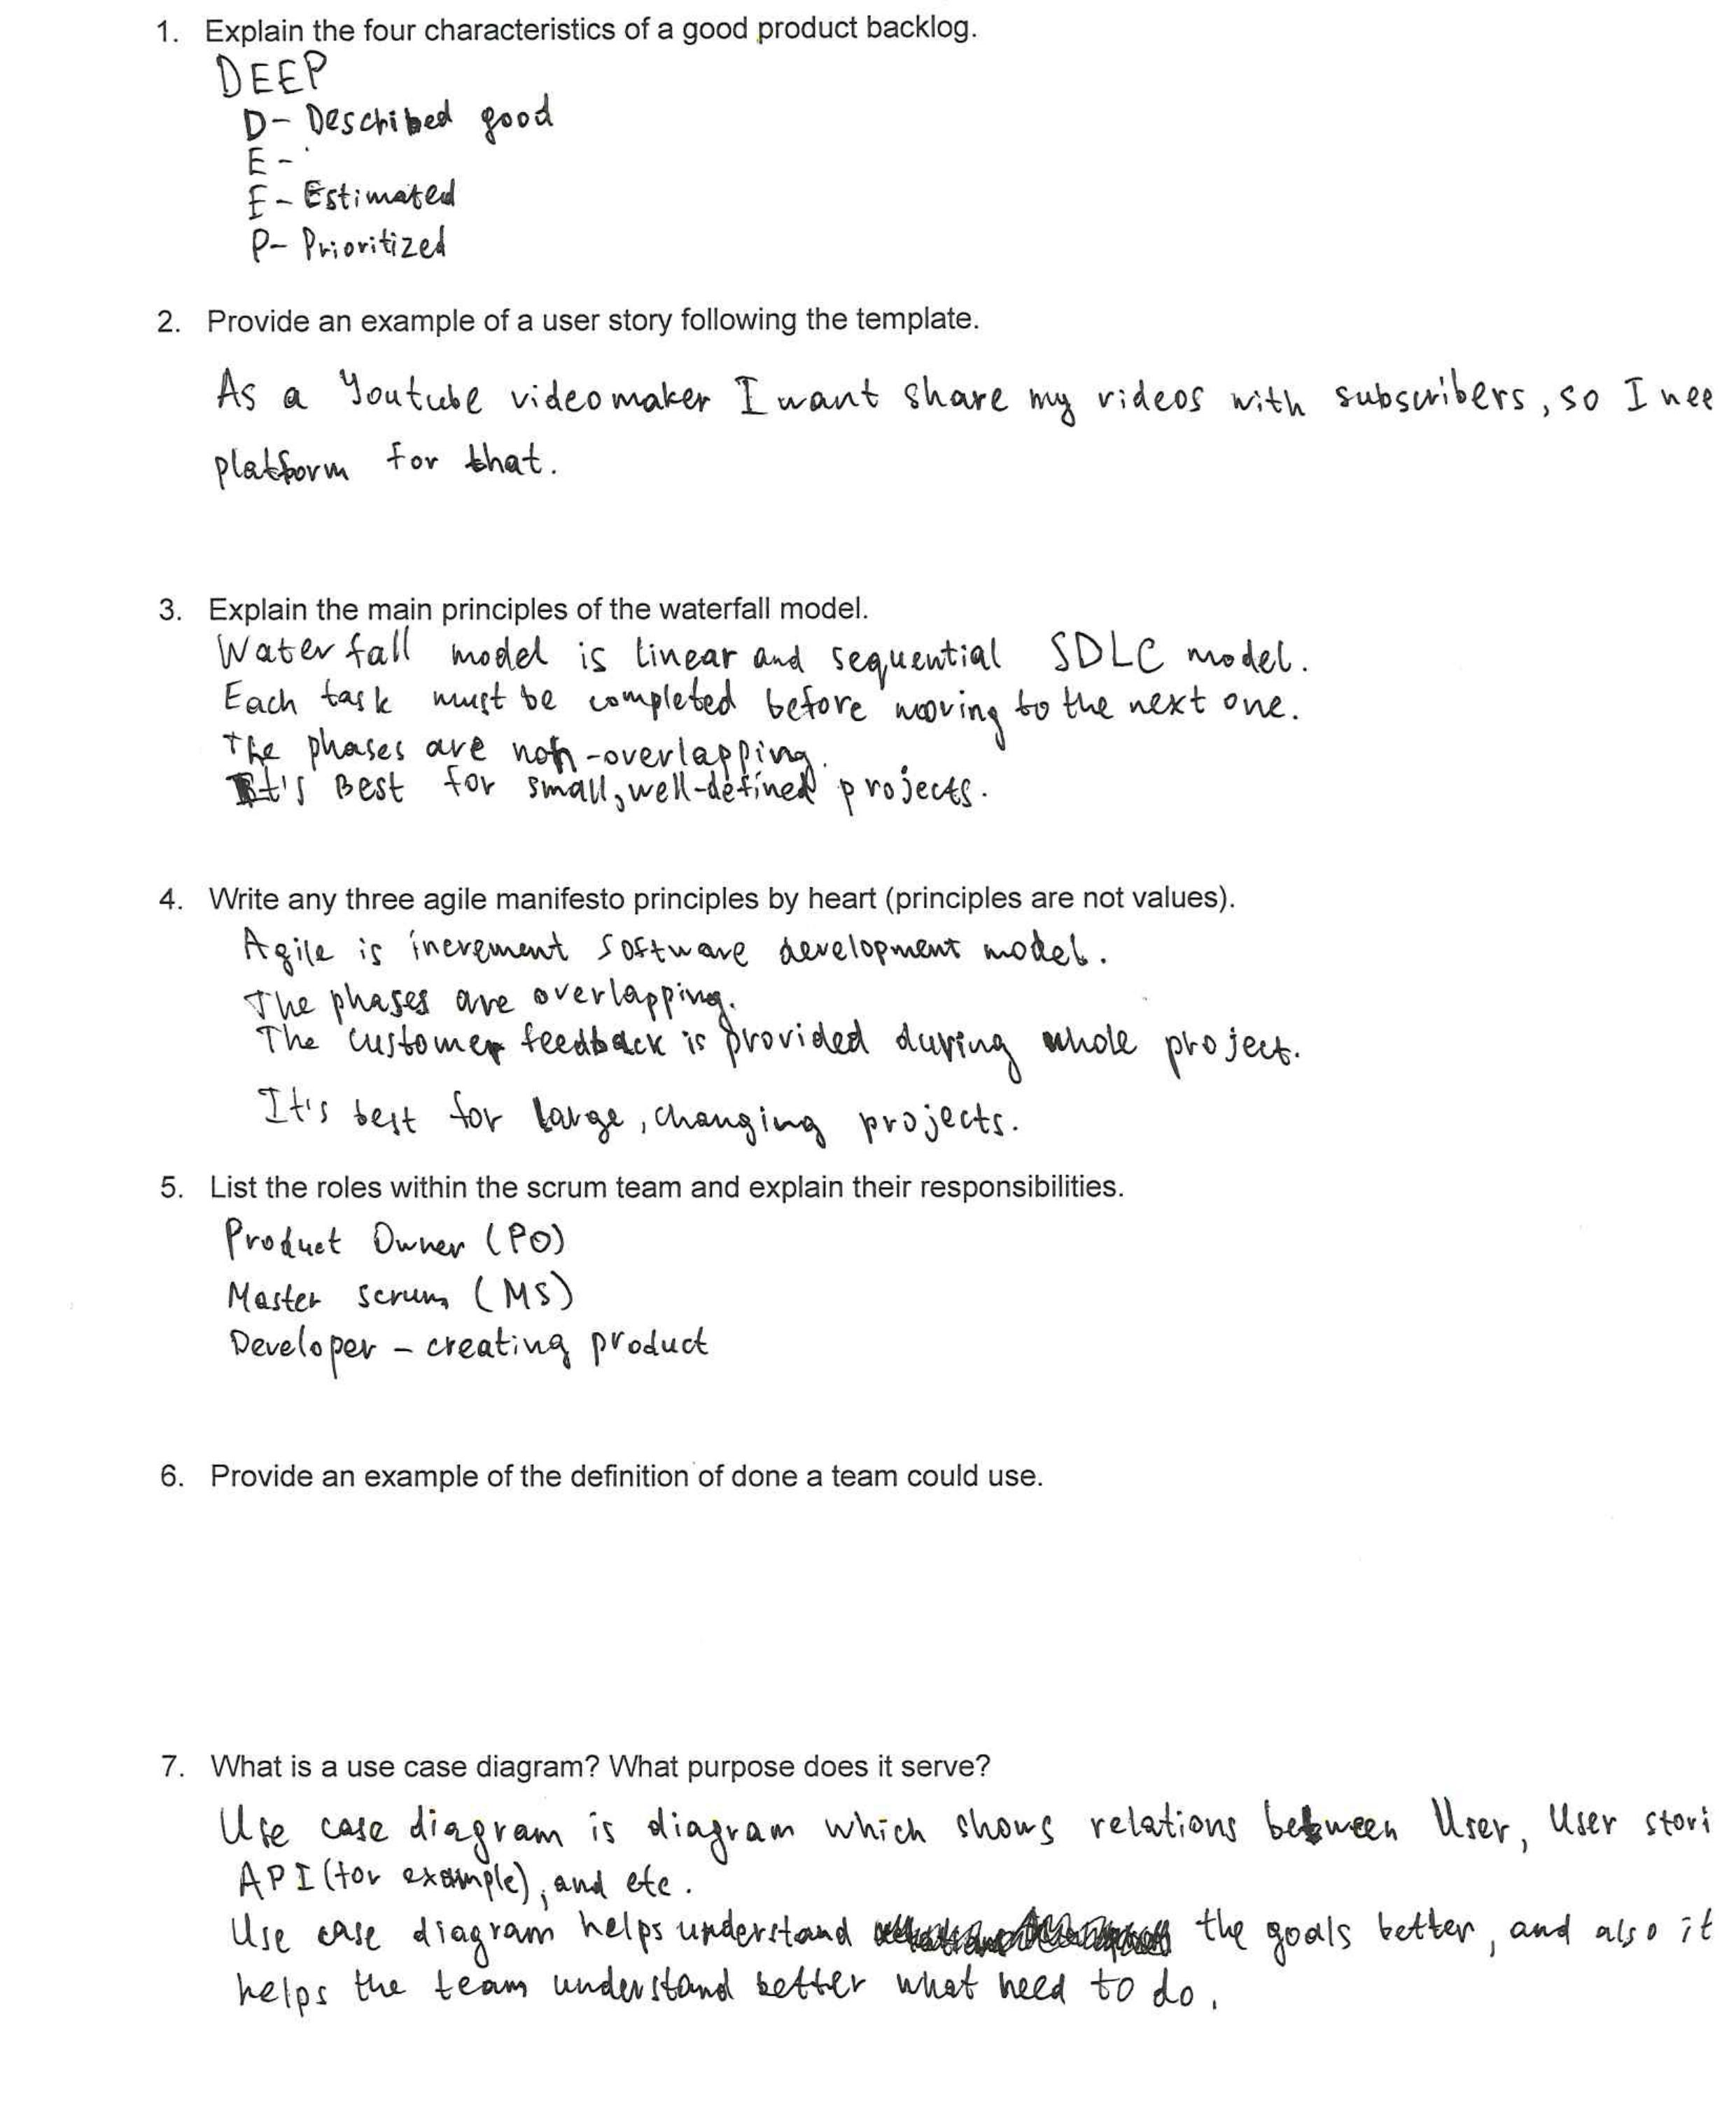 1. Explain the four characteristics of a good product backlog.
DEEP
D- Described good
E-
E- Estimated
P- Prioritized
2. Provide an example of a user story following the template.
As a Youtube videomaker I want share my videos with subscribers, so I nee
platform for that.
3. Explain the main principles of the waterfall model.
Waterfall model is linear and sequential SDLC model.
Each task must be completed before moving to the next one.
The phases are non-overlapping.
It's Best for small, well-defined projects.
4. Write any three agile manifesto principles by heart (principles are not values).
Agile is increment software development model.
The phases are overlapping.
The customer feedback is provided during whole project.
It's best for large, changing projects.
5. List the roles within the scrum team and explain their responsibilities.
Product Owner (PO)
Master scrum (MS)
Developer - creating product
6. Provide an example of the definition of done a team could use.
7. What is a use case diagram? What purpose does it serve?
Use case diagram is diagram which shows relations between User, User stori
API (for example), and etc.
Use case diagram helps understand the goals better, and also it
helps the team understand better what need to do.